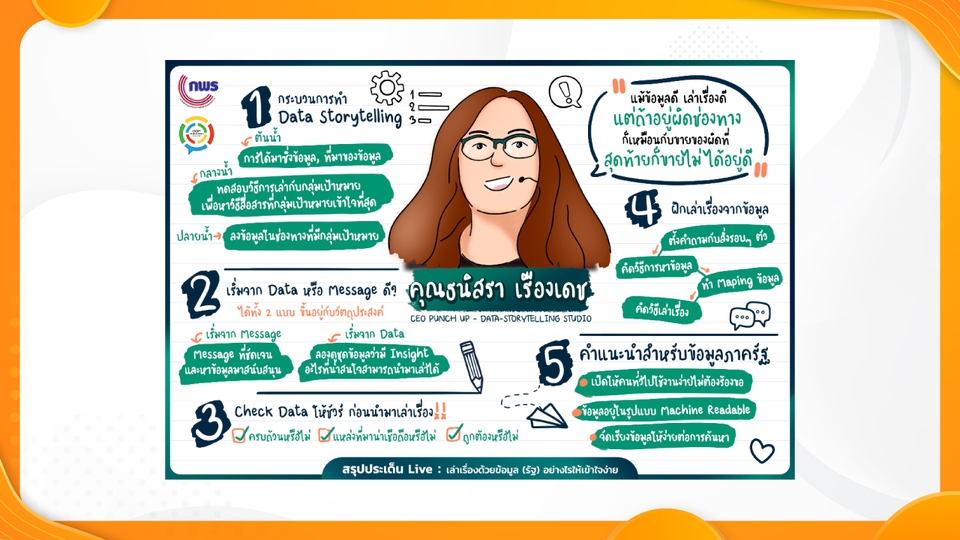 กพร
1 กระบวนการทำ
Data Storytelling
1
2
3
ต้นน้ำ
การได้มาซึ่งข้อมูล, ที่มาของข้อมูล
กลางน้ำ
ทดสอบวิธีการเล่ากับกลุ่มเป้าหมาย
เพื่อหาวิธีสื่อสารที่กลุ่มเป้าหมายเข้าใจที่สุด
ปลายน้ำ
ลงข้อมูลในช่องทางที่มีกลุ่มเป้าหมาย
2 เริ่มจาก Data หรือ Message ดี?
ได้ทั้ง 2 แบบ ขึ้นอยู่กับวัตถุประสงค์
เริ่มจาก Message
Message ที่ชัดเจน
และหาข้อมูลมาสนับสนุน
เริ่มจาก Data
ลองดูชุดข้อมูลว่ามี Insight
อะไรที่น่าสนใจสามารถนำมาเล่าได้
3 Check Data ให้ชัวร์ ก่อนนำมาเล่าเรื่อง!!
ครบถ้วนหรือไม่
แหล่งที่มาน่าเชื่อถือหรือไม่
ถูกต้องหรือไม่
คุณธนิสรา เรืองเดช
CEO PUNCH UP - DATA-STORYTELLING STUDIO
!
"แม้ข้อมูลดี เล่าเรื่องดี
แต่ถ้าอยู่ผิดช่องทาง
ก็เหมือนกับขายของผิดที่
สุดท้ายก็ขายไม่ได้อยู่ดี"
4 ฝึกเล่าเรื่องจากข้อมูล
ตั้งคำถามกับสิ่งรอบๆ ตัว
คิดวิธีการหาข้อมูล
ทำ Maping ข้อมูล
คิดวิธีเล่าเรื่อง
5 คำแนะนำสำหรับข้อมูลภาครัฐ
เปิดให้คนทั่วไปใช้งานง่ายไม่ต้องร้องขอ
ข้อมูลอยู่ในรูปแบบ Machine Readable
จัดเรียงข้อมูลให้ง่ายต่อการค้นหา
สรุปประเด็น Live : เล่าเรื่องด้วยข้อมูล (รัฐ) อย่างไรให้เข้าใจง่าย